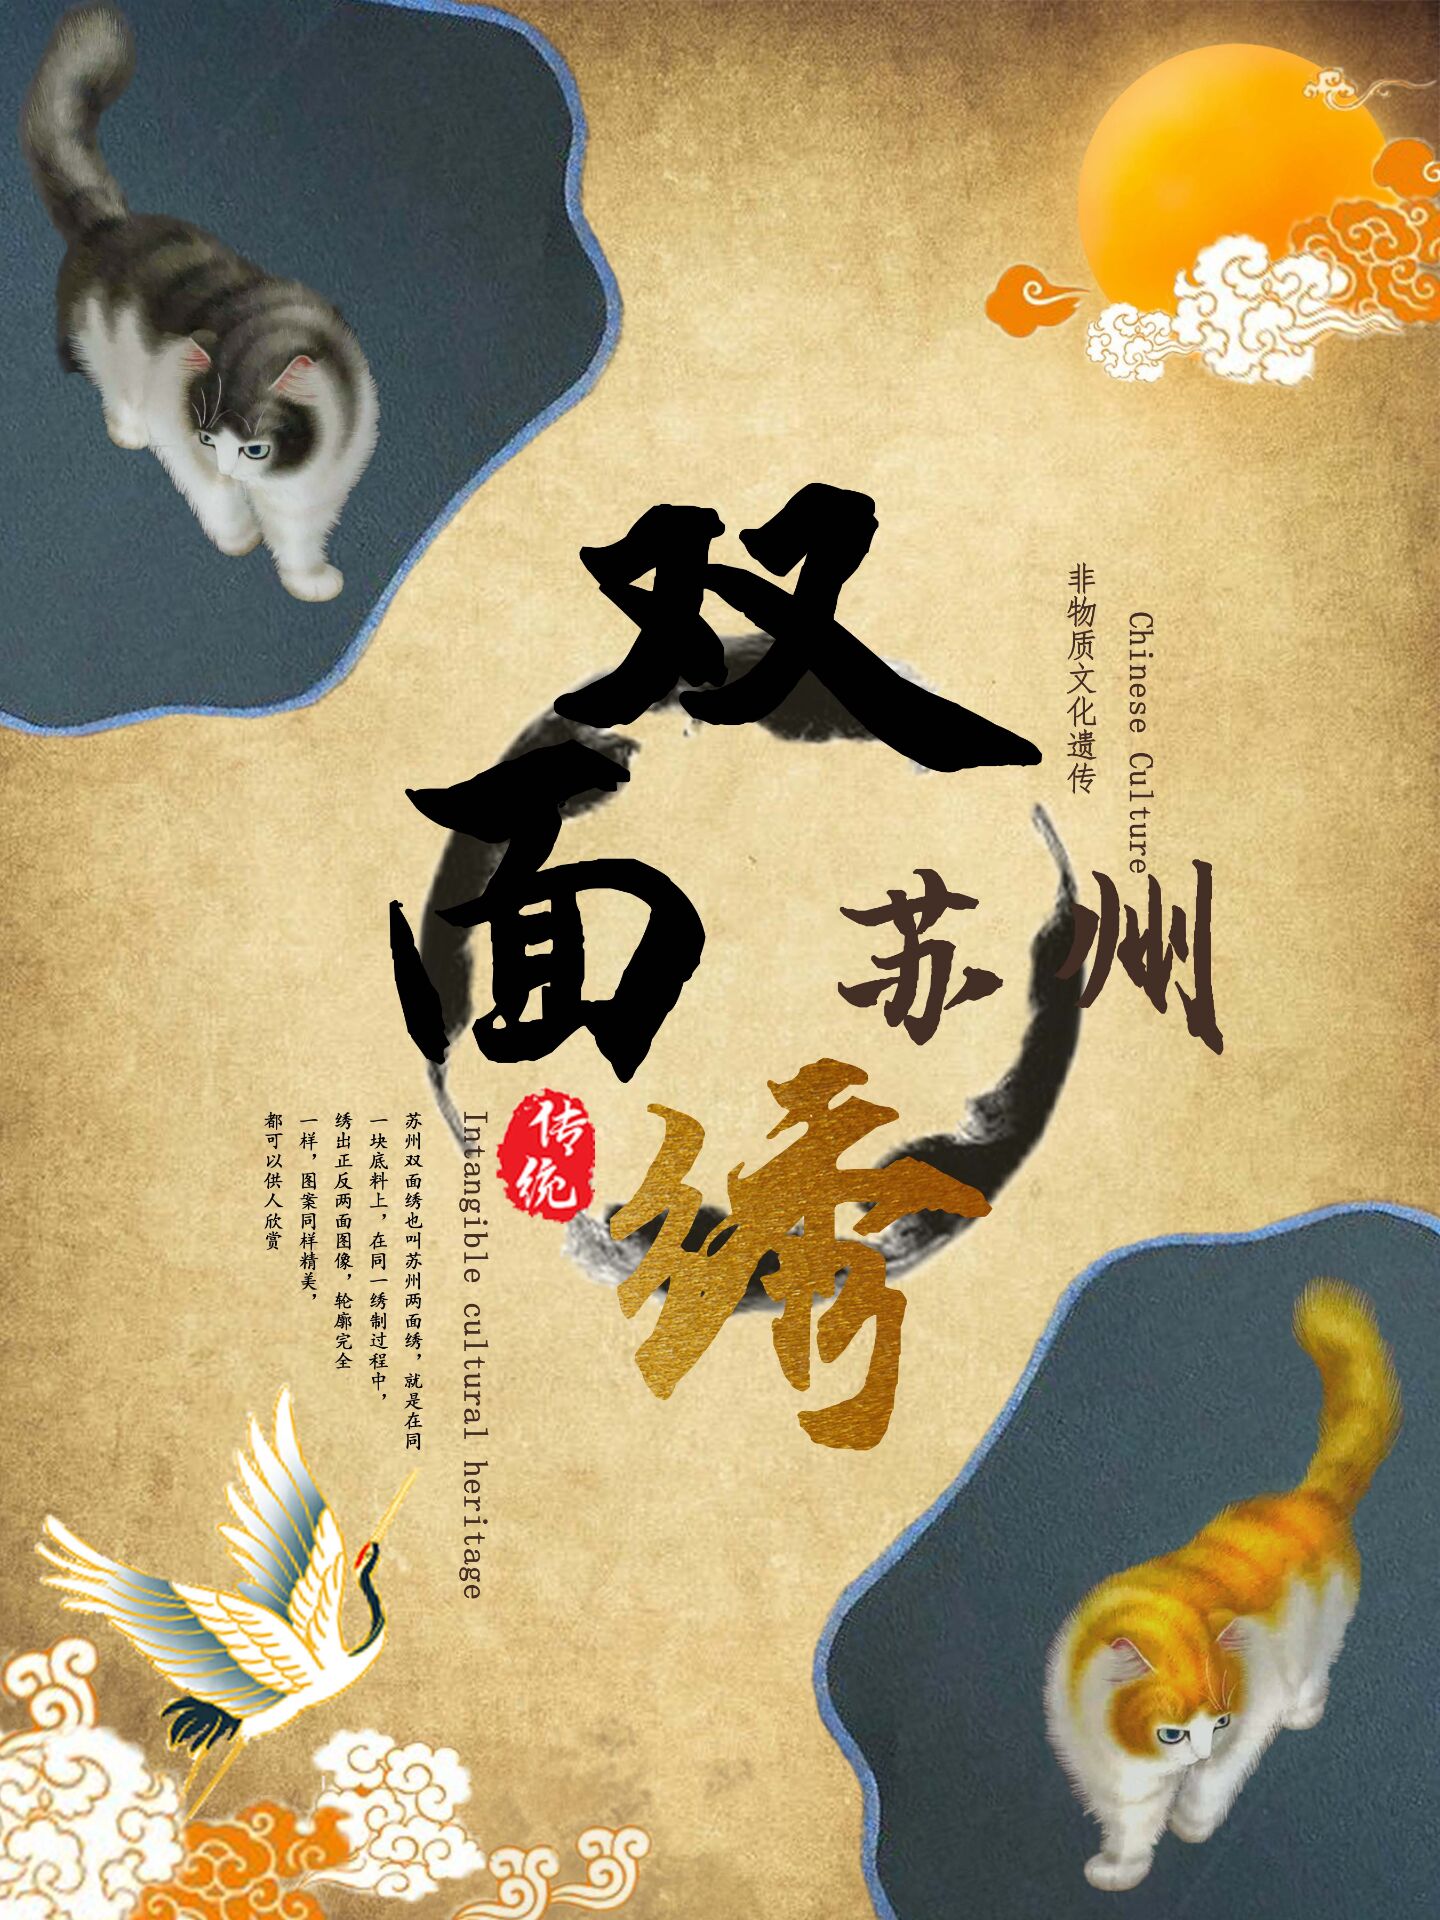 双
面
绣
苏州
非物质文化遗传
Chinese Culture
传统
Intangible cultural heritage
苏州双面绣也叫苏州两面绣，就是在同
一块底料上，在同一绣制过程中，
绣出正反两面图像，轮廓完全
一样，图案同样精美，
都可以供人欣赏